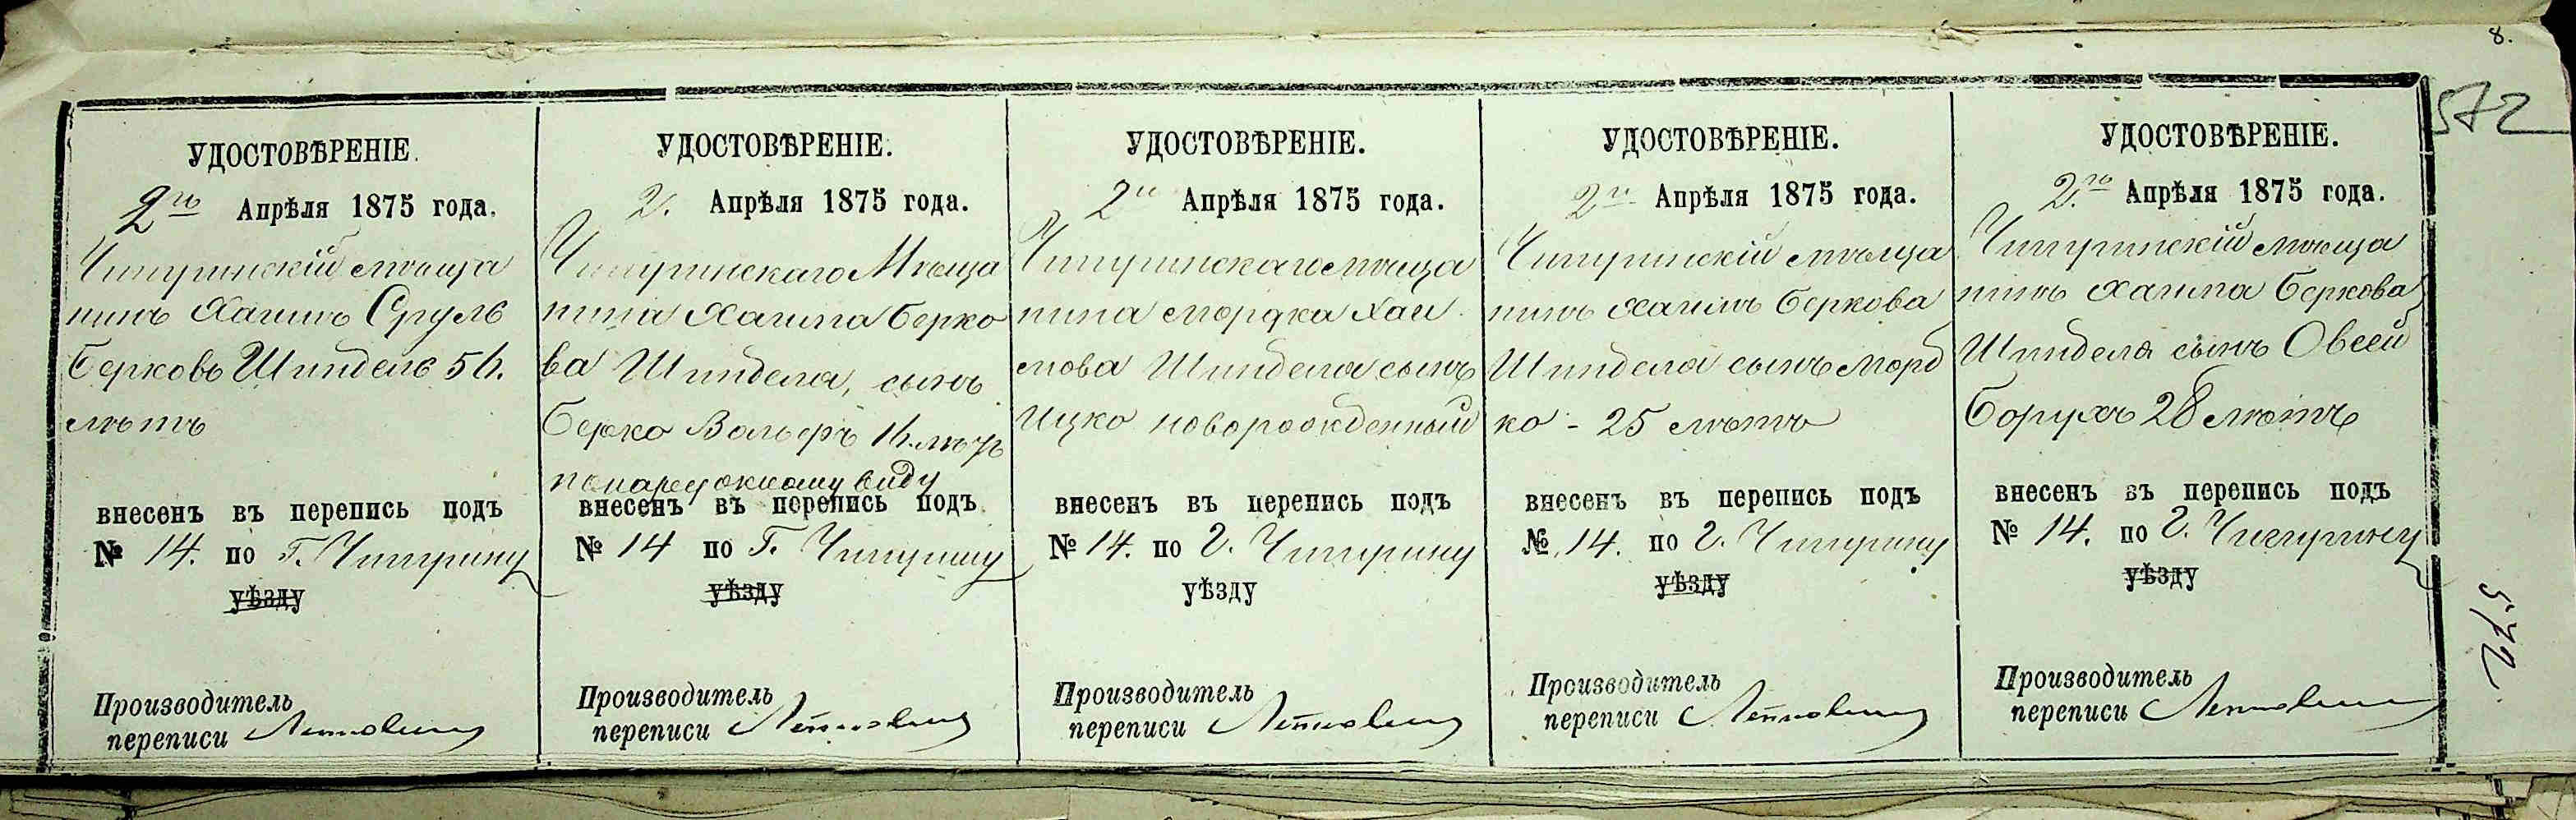 8.
572
УДОСТОВѢРЕНІЕ.
2го Апрѣля 1875 года.
Чигиринскій мѣща
нинъ Хаимъ Сруль
Берковъ Шпидель 51.
лѣтъ
внесенъ въ перепись подъ
№ 14. по Г. Чигирину
уѣзду
Производитель
переписи
УДОСТОВѢРЕНІЕ.
2. Апрѣля 1875 года.
Чигиринскаго Мѣща
нина Хаима Берко
ва Шпиделя, сынъ
Берко Вольфъ 11. лѣтъ
по наружному виду
внесенъ въ перепись подъ
№ 14 по Г. Чигирину
уѣзду
Производитель
переписи
УДОСТОВѢРЕНІЕ.
2го Апрѣля 1875 года.
Чигиринскаго мѣща
нина Мордка Хаи
мова Шпиделя сынъ
Ицко новорожденный
внесенъ въ перепись подъ
№ 14. по Г. Чигирину
уѣзду
Производитель
переписи
УДОСТОВѢРЕНІЕ.
2го Апрѣля 1875 года.
Чигиринскій мѣща
нинъ Хаимъ Беркова
Шпиделя сынъ Морд
ко - 25 лѣтъ
внесенъ въ перепись подъ
№ 14. по Г. Чигирину
уѣзду
Производитель
переписи
УДОСТОВѢРЕНІЕ.
2го Апрѣля 1875 года.
Чигиринскій мѣща
нинъ Хаима Беркова
Шпиделя сынъ Овсей
Борухъ 28 лѣтъ
внесенъ въ перепись подъ
№ 14. по Г. Чигирину
уѣзду
Производитель
переписи
572